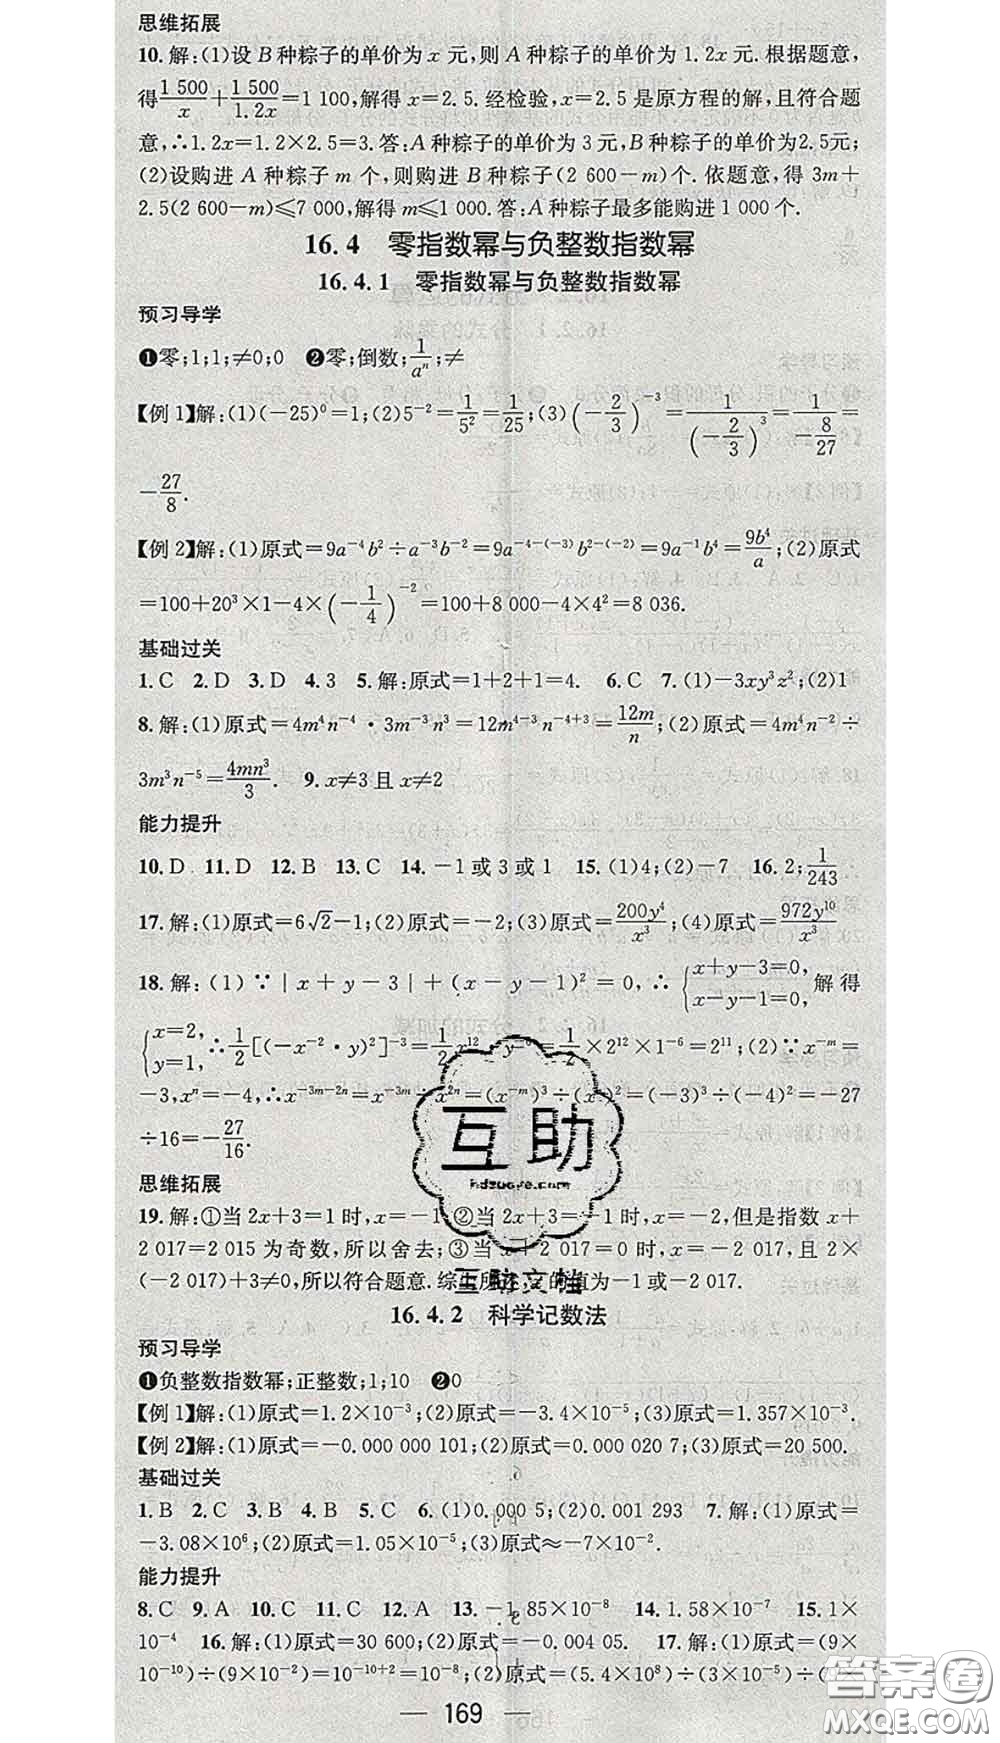 思维拓展
10. 解:(1)设 B 种粽子的单价为 x 元,则 A 种粽子的单价为 1.2x 元. 根据题意,
得 1 500/x + 1 500/1.2x = 1 100,解得 x=2.5. 经检验,x=2.5 是原方程的解,且符合题
意,∴1.2x=1.2×2.5=3. 答:A 种粽子的单价为 3 元,B 种粽子的单价为2.5元;
(2)设购进 A 种粽子 m 个,则购进 B 种粽子(2 600−m)个. 依题意,得 3m+
2.5(2 600−m)≤7 000,解得 m≤1 000. 答:A 种粽子最多能购进 1 000 个.
16.4 零指数幂与负整数指数幂
16.4.1 零指数幂与负整数指数幂
预习导学
❶零;1;1;≠0;0 ❷零;倒数;1/aⁿ;≠
【例 1】解:(1)(−25)⁰=1;(2)5⁻²=1/5²=1/25;(3)(−2/3)⁻³=1/(−2/3)³=1/(−8/27)=
−27/8.
【例 2】解:(1)原式=9a⁻⁴b²÷a⁻³b⁻²=9a^(−4−(−3))b^(2−(−2))=9a⁻¹b⁴=9b⁴/a;(2)原式
=100+20³×1−4×(−1/4)⁻²=100+8 000−4×4²=8 036.
基础过关
1. C 2. D 3. D 4. 3 5. 解:原式=1+2+1=4. 6. C 7. (1)−3xy³z²;(2)1
8. 解:(1)原式=4m⁴n⁻⁴·3m⁻³n³=12m^(4−3)n^(−4+3)=12m/n;(2)原式=4m⁴n⁻²÷
3m³n⁻⁵=4mn³/3. 9. x≠3 且 x≠2
能力提升
10. D 11. D 12. B 13. C 14. −1 或 3 或 1 15. (1)4;(2)−7 16. 2;1/243
17. 解:(1)原式=6√2−1;(2)原式=−2;(3)原式=200y⁴/x³;(4)原式=972y¹⁰/x³
18. 解:(1)∵|x+y−3|+(x−y−1)²=0,∴{x+y−3=0, x−y−1=0, 解得
{x=2, y=1, ∴1/2[(−x⁻²·y)²]⁻³=1/2x¹²·y⁻⁶=1/2×2¹²×1⁻⁶=2¹¹;(2)∵x⁻ᵐ=
−3,xⁿ=−4,∴x^(−3m−2n)=x^(−3m)÷x^(2n)=(x⁻ᵐ)³÷(xⁿ)²=(−3)³÷(−4)²=−27
÷16=−27/16.
思维拓展
19. 解:①当 2x+3=1 时,x=−1;②当 2x+3=−1 时,x=−2,但是指数 x+
2 017=2 015 为奇数,所以舍去;③当 x+2 017=0 时,x=−2 017,且 2×
(−2 017)+3≠0,所以符合题意. 综上所述,x 的值为−1 或−2 017.
16.4.2 科学记数法
预习导学
❶负整数指数幂;正整数;1;10 ❷0
【例 1】解:(1)原式=1.2×10⁻³;(2)原式=−3.4×10⁻⁵;(3)原式=1.357×10⁻³.
【例 2】解:(1)原式=−0.000 000 101;(2)原式=0.000 020 7;(3)原式=20 500.
基础过关
1. B 2. C 3. B 4. B 5. C 6. (1)0.000 5;(2)0.001 293 7. 解:(1)原式=
−3.08×10⁶;(2)原式=1.05×10⁻⁵;(3)原式≈−7×10⁻².
能力提升
8. C 9. A 10. C 11. C 12. A 13. −1.85×10⁻⁸ 14. 1.58×10⁻⁷ 15. 1×
10⁻⁴ 16. 解:(1)原式=30 600;(2)原式=−0.004 05. 17. 解:(1)原式=(9×
10⁻¹⁰)÷(9×10⁻²)=10^(−10+2)=10⁻⁸;(2)原式=(5.4×10⁸)÷(3×10⁻⁵)÷(3×
— 169 —
互助
hdzuoye.com
互助文档
答案圈
MXQE.COM